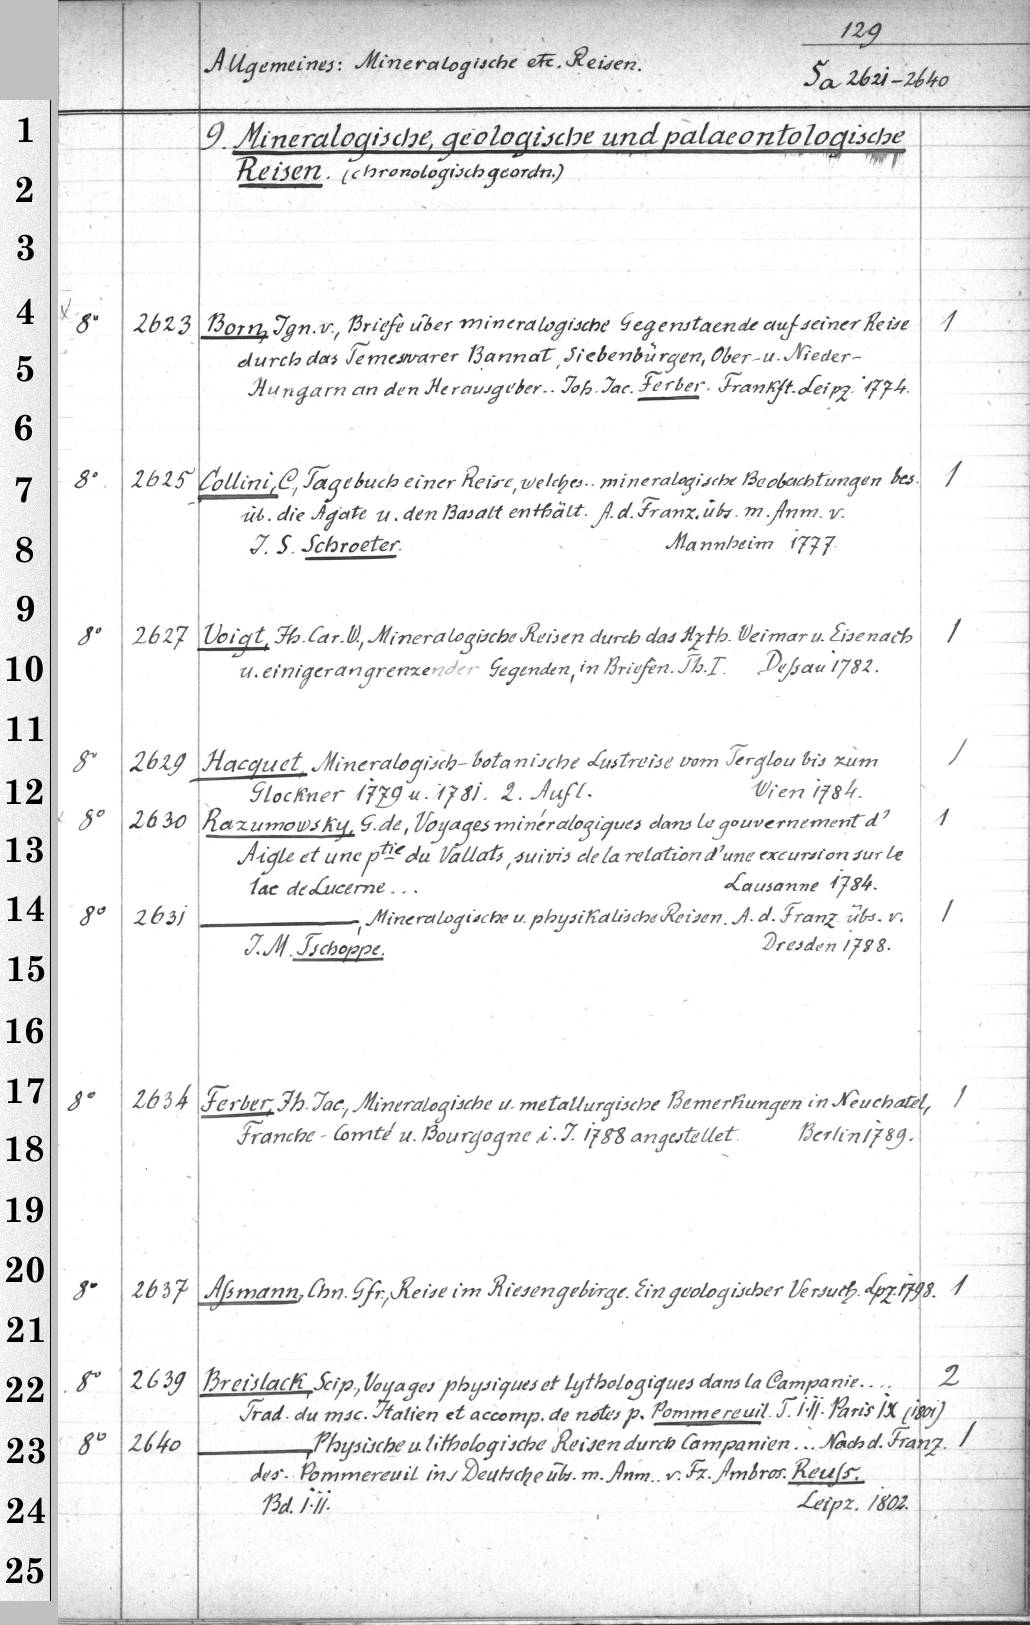 129
Allgemeines: Mineralogische etc. Reisen.
5a 2621-2640
9. Mineralogische, geologische und palaeontologische
Reisen. (chronologisch geordn.)
8° 2623 Born, Ign. v., Briefe über mineralogische Gegenstaende auf seiner Reise 1
durch das Temeswarer Bannat, Siebenbürgen, Ober- u. Nieder-
Hungarn an den Herausgeber.. Joh. Jac. Ferber. Frankft.-Leipz. 1774.
8° 2625 Collini, C., Tagebuch einer Reise, welches.. mineralogische Beobachtungen bes. 1
üb. die Agate u. den Basalt enthält. A. d. Franz. übs. m. Anm. v.
J. S. Schroeter. Mannheim 1777.
8° 2627 Voigt, Jh. Car. W., Mineralogische Reisen durch das Hzth. Weimar u. Eisenach 1
u. einiger angrenzender Gegenden, in Briefen. Th. I. Deßau 1782.
8° 2629 Hacquet, Mineralogisch-botanische Lustreise vom Terglou bis zum 1
Glockner 1779 u. 1781. 2. Aufl. Wien 1784.
8° 2630 Razumowsky, G. de, Voyages minéralogiques dans le gouvernement d' 1
Aigle et une ptie du Vallats, suivis de la relation d'une excursion sur le
lac de Lucerne ... Lausanne 1784.
8° 2631 ———, Mineralogische u. physikalische Reisen. A. d. Franz. übs. v. 1
J. M. Tschoppe. Dresden 1788.
8° 2634 Ferber, Jh. Jac., Mineralogische u. metallurgische Bemerkungen in Neuchatel, 1
Franche-Comté u. Bourgogne i. J. 1788 angestellet. Berlin 1789.
8° 2637 Aßmann, Chn. Gfr., Reise im Riesengebirge. Ein geologischer Versuch. Lpz. 1798. 1
8° 2639 Breislack, Scip., Voyages physiques et lythologiques dans la Campanie.... 2
Trad. du msc. Italien et accomp. de notes p. Pommereuil. T. I.II. Paris IX (1801)
8° 2640 ——— Physische u. lithologische Reisen durch Campanien ... Nach d. Franz. 1
des. Pommereuil ins Deutsche übs. m. Anm.. v. Fz. Ambros. Reuß.
Bd. I.II. Leipz. 1802.
1
2
3
4
5
6
7
8
9
10
11
12
13
14
15
16
17
18
19
20
21
22
23
24
25